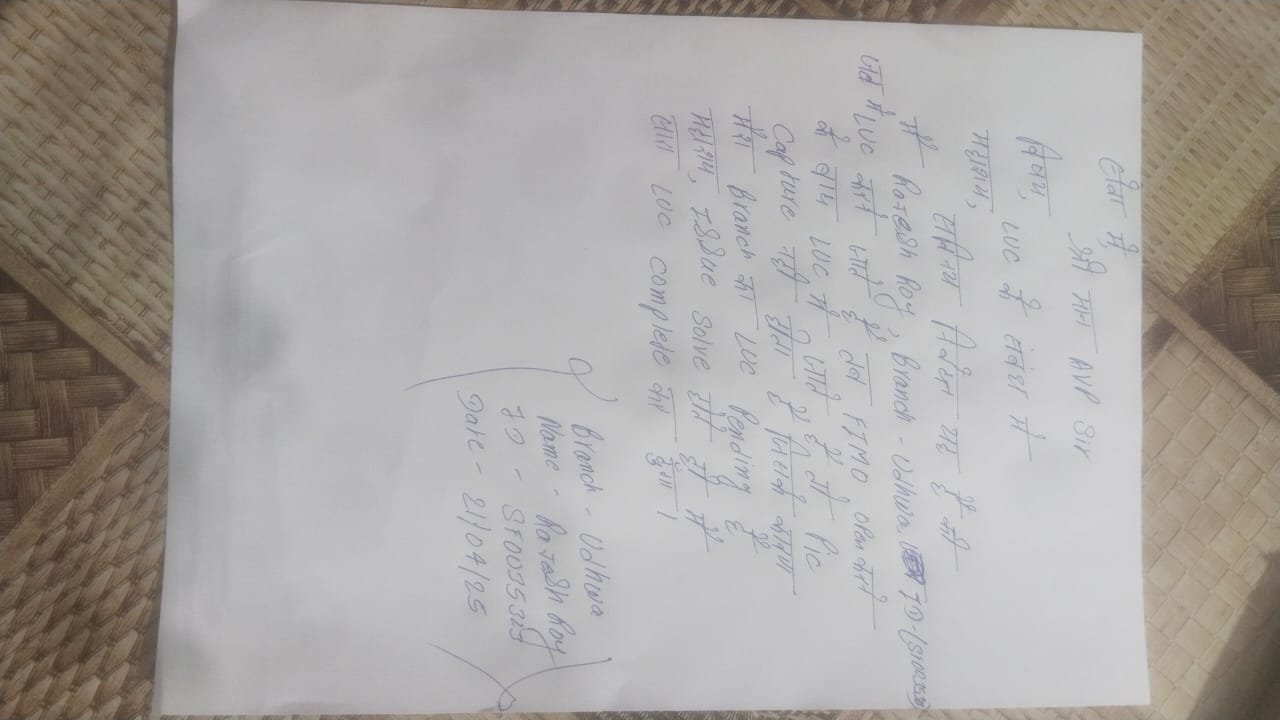 सेवा में,
श्री मान AVP Sir
विषय, LUC के संबंध में
महाशय,
सविनय निवेदन यह है की
मैं Ratesh Roy, Branch - Udhwa ID-
जब मैं LUC करने जाते है तब FIMO ओपन करने
के बाद LUC में जाते है तो Pic
Capture नही होता है जिसके कारण
मेरा Branch का LUC Pending है
महाशय, Issue Solve होते ही मैं
सारा LUC complete कर दूँगा।
Branch - Udhwa
Name - Ratesh Roy
ID - SF0035329
Date - 21/07/25